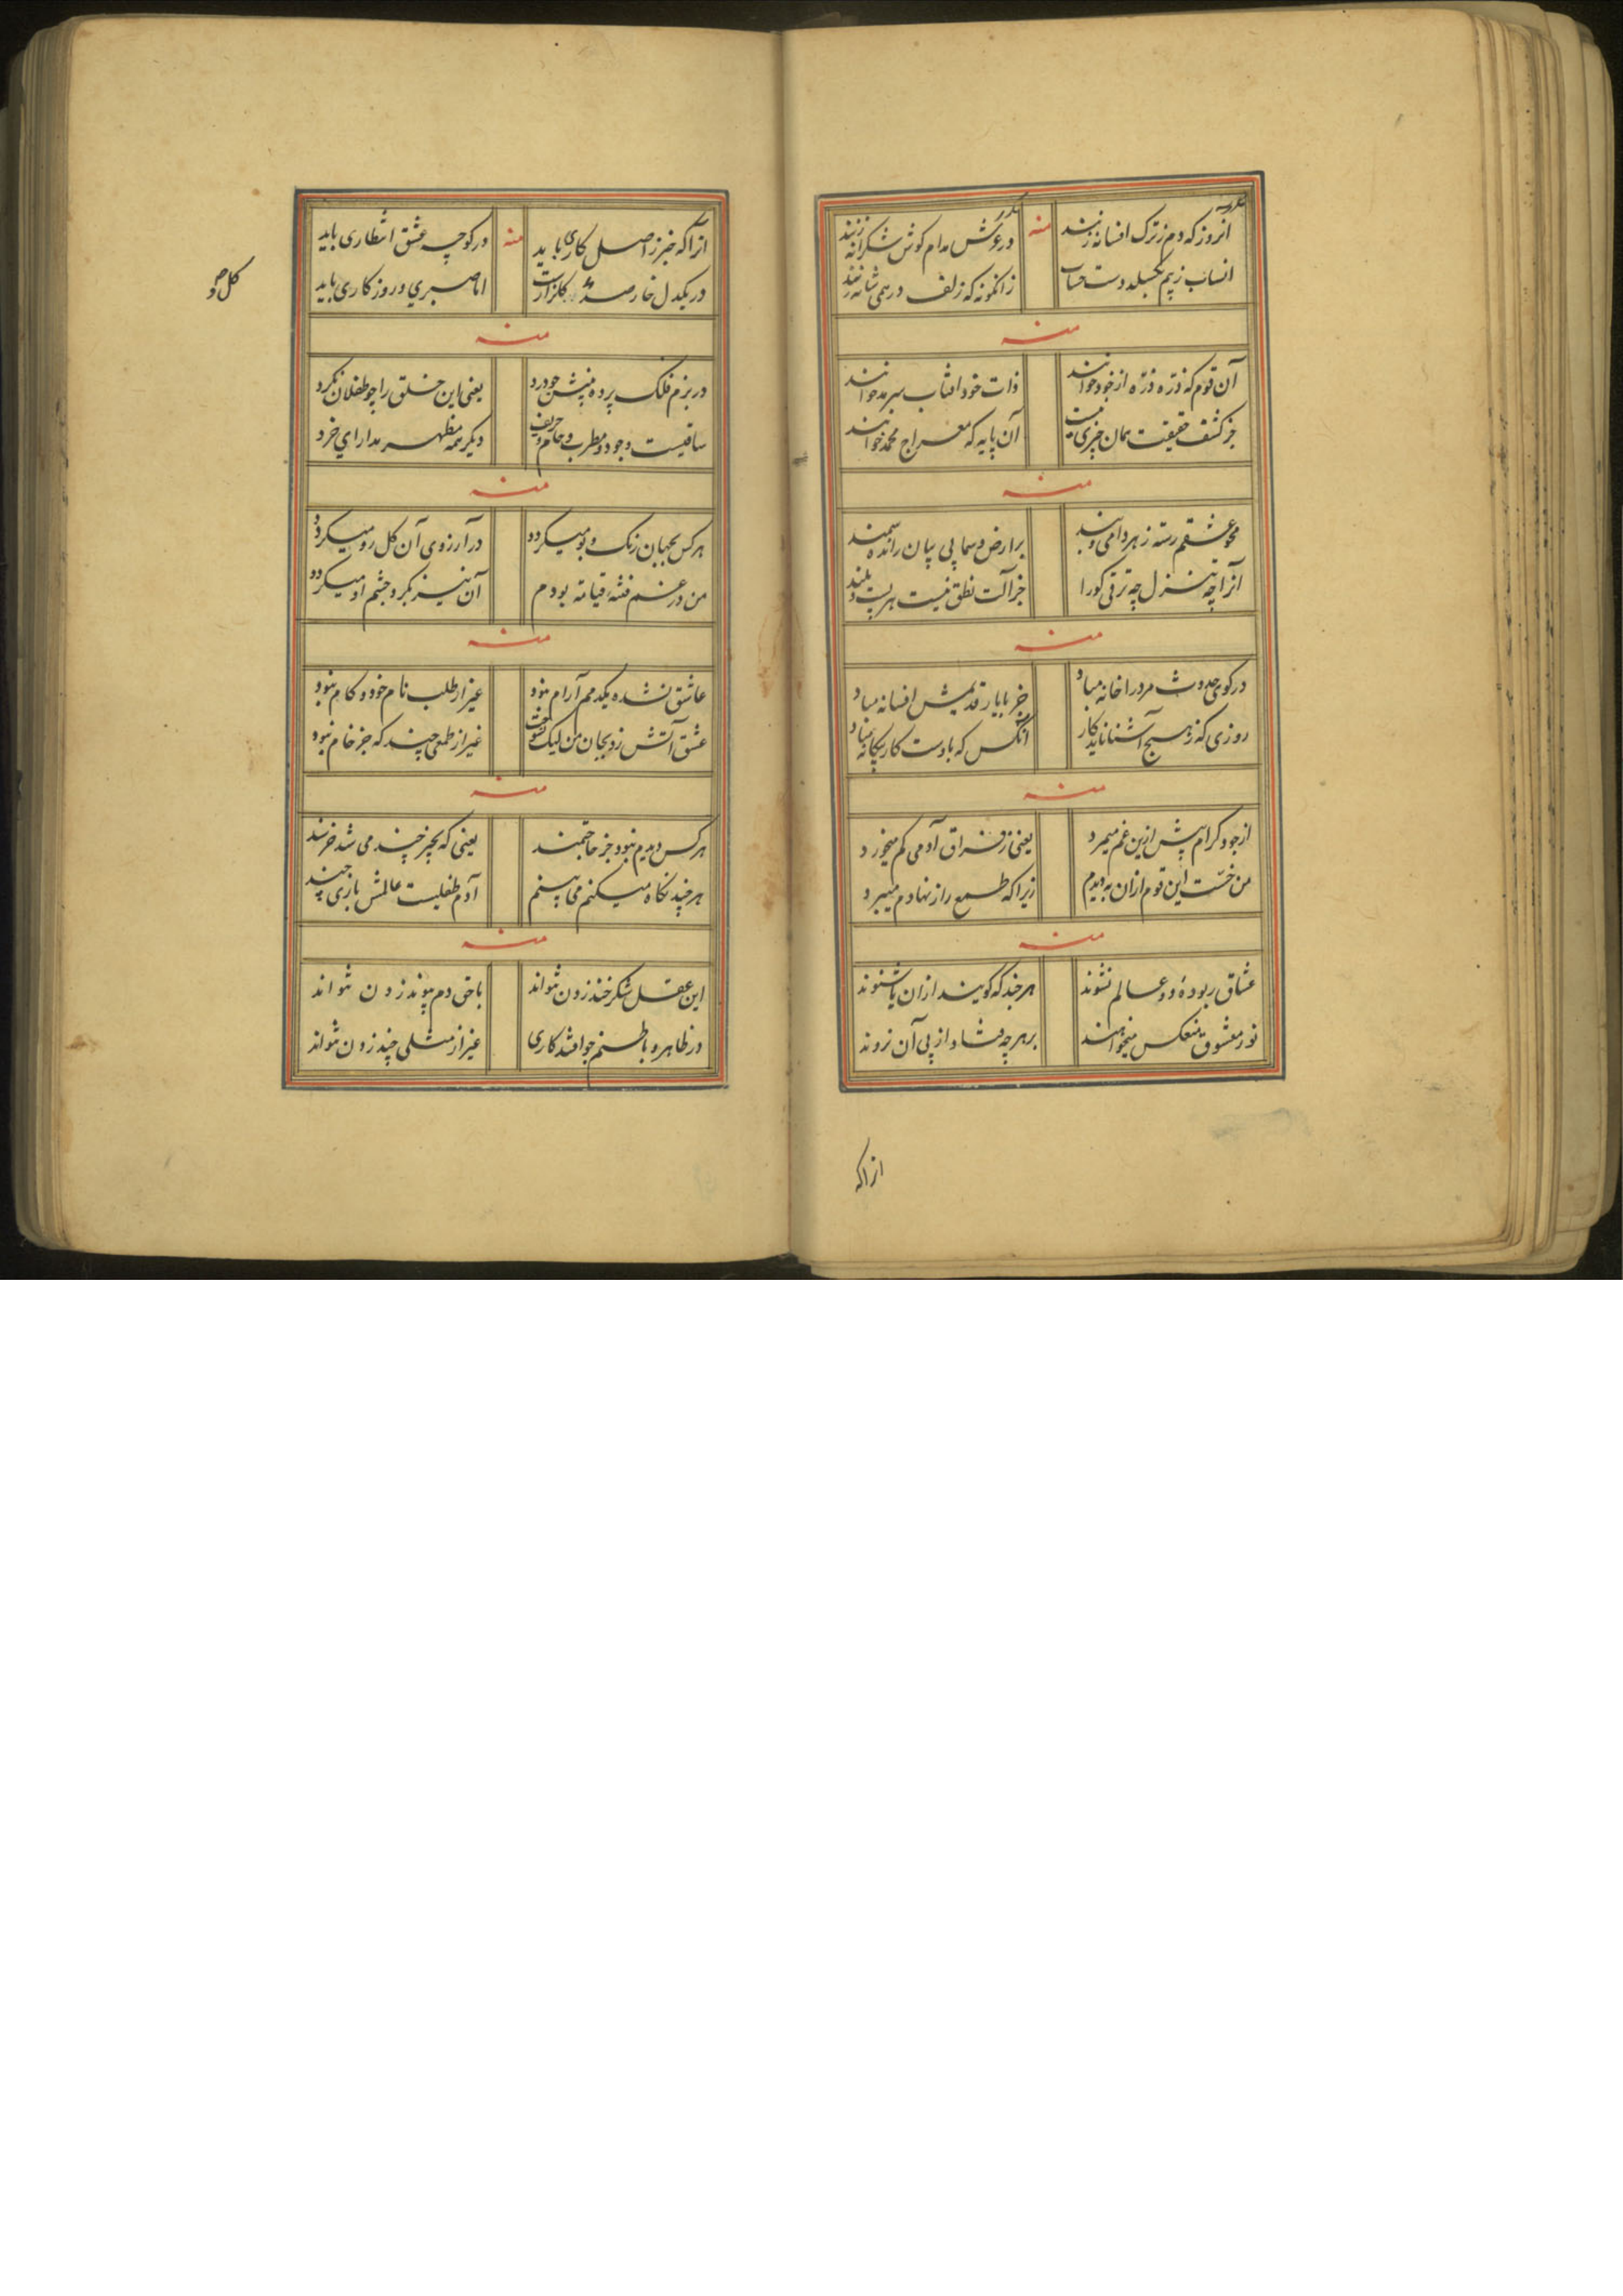 انروز که دم ز ترک افسانه زنند
منه
در عرش مدام کوش شکرانه زنند
انساب ز پم بکسلد دست حساب
زانکونه که زلف درهمی شانه زنند
منه
آن قوم که ذره ذره از خود خوانند
ذات خود افتاب سرمد خوانند
جز کشف حقیقت همان چیزی نیست
آن پایه که معراج محمد خوانند
منه
محو عشقم رسته ز هر دامی و بند
بر ارض و سما پی پیان رانده سمند
آنرا چه تنزل چه ترقی کورا
جز آلت نطق نیست هر پست و بلند
منه
در کوی حدوث مرد را خانه مباد
جز با یار قدیمش افسانه مباد
روزی که ز هیچ آشنا ناید کار
آنکس که بادست کار بیکانه مباد
منه
از جود کرام پیش ازین غم میمرد
یعنی ز فراق آدمی کم میخورد
من خست این قوم ازان به دیدم
زیرا که طمع را ز نهادم میبرد
منه
عشاق ربوده دو عالم نشوند
هر چند که کویند ازان یا شنوند
نور معشوق منعکس میخواهند
بر هر چه فتاد از پی آن نروند
ازاکه
ازاکه خبر ز اصل کاری باید
منه
در کوچه عشق انتظاری باید
در یکدل خار صد کلزارست
اما صبری و روزکاری باید
کل جو
منه
در بزم فلک پرده منیش چو درد
یعنی این خلق را چو طفلان نکرد
ساقیست وجود و مطرب و جام و حریف
دیکر همه مظهر مدارای خرد
منه
هر کس بجهان رنک و بو میکردد
در آرزوی آن کل رو میکردد
من در غم فتنه قیامته بودم
آن نیز بکرد چشم او میکردد
منه
عاشق نشده یکدمم آرام نبود
غیر از طلب نام خود و کام نبود
عشق آتش زد بجان من لیک نسوخت
غیر از طمعی چند که جز خام نبود
منه
هر کس دیدم نبود جز حاجتمند
یعنی که بچیز چند می شد خرسند
هر چند نکاه میکنم می بینم
آدم طفلیست عالمش بازی چند
منه
این عقل شکر خند زدن نتواند
با حق دم پیوند زدن نتواند
در ظاهر و باطنم چو افتد کاری
غیر از مثلی چند زدن نتواند